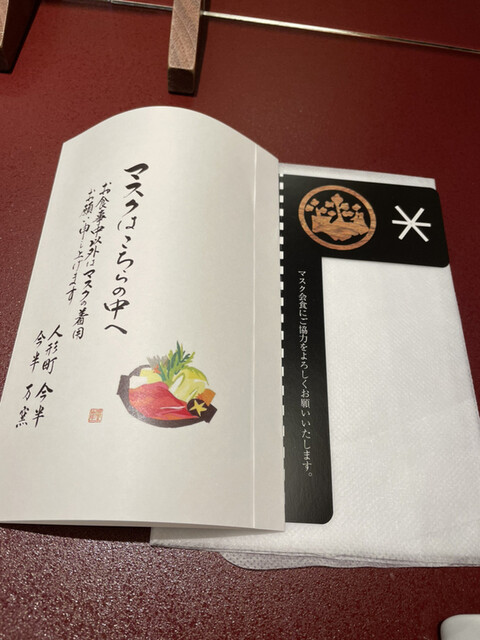 マスクはこちらの中へ
お食事中以外はマスクの着用
お願い申し上げます
人形町 今半
今半 万窯
マスク会食にご協力をよろしくお願いいたします。